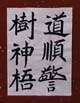 警梧
順神
道樹